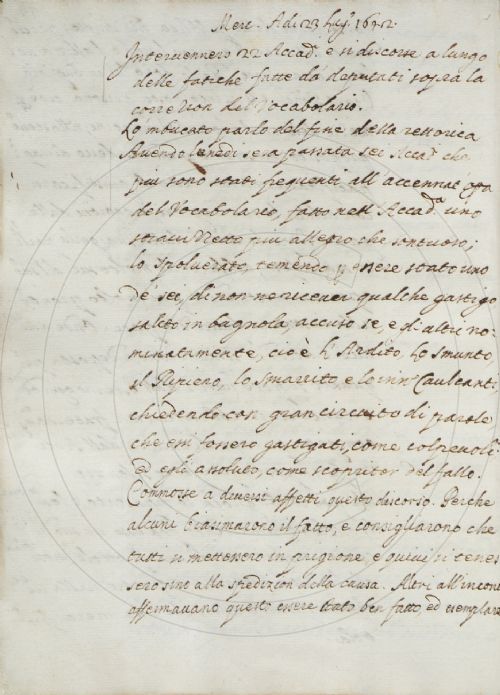 Merc. A dì 23 lug.º 1642.
Intervennero 22 Accad.ⁱ e si discorse a lungo
delle fatiche fatte da deputati sopra la
correzion del Vocabolario.
Lo mbucato parlò del fine della rettorica
Avendo lunedì sera passata sei Accad.ⁱ che
più sono stati frequenti all' accennat' opa
del Vocabolario, fatto nell' Accad.ª uno
stravizzetto più allegro che sontuoso;
lo Spolverato temendo p essere stato uno
de sei, di non ne ricever qualche gastigo
saltò in bugnola, accusò se, e gli altri no-
minatamente, cioè l'Ardito, Lo smunto,
il Ripieno, lo smarrito, e lo inn.º Cavalcanti
chiedendo con gran circuito di parole
che essi fossero gastigati, come colpevoli
ed egli assoluto, come scopritor del fallo.
Commosse a diversi affetti questo discorso. Perche
alcuni biasimarono il fatto, e consigliarono che
tutti si mettessero in prigione, e quivi si tenes
sero sino alla spedizion della causa. Altri all'incont
affermavano questo essere stato ben fatto, ed esemplare